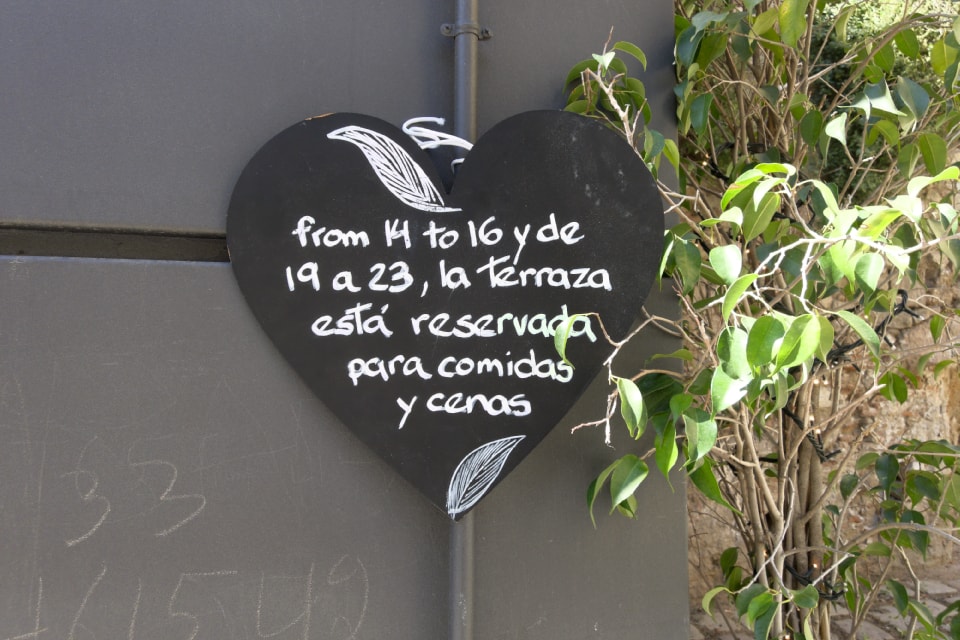 from 14 to 16 y de
19 a 23, la terraza
está reservada
para comidas
y cenas
33